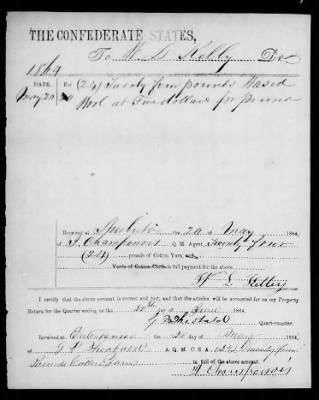 THE CONFEDERATE STATES,
To W. L. Kelly Dr
1864
DATE.
May 20 For (24) Twenty four pounds Washed
Wool at Five dollars per pound
Received at on 20 of May 1864,
of Q. M. Agent, Twenty four
(24) pounds of Cotton Yarn, and
Yards of Cotton Cloth in full payment for the above.
W. L. Kelly
I certify that the above account is correct and just, and that the articles will be accounted for on my Property
Return for the Quarter ending on the 30th of June 1864.
Quarter-master.
Received at Enterprise on the 20 of May 1864,
of A. Q. M. C. S. A.
Pounds Cotton Yarns in full of the above account.